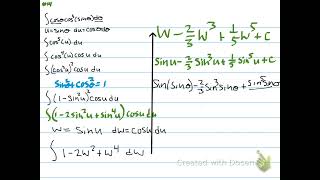 ∫cosθcos⁵(sinθ)dθ
u=sinθ du=cosθdθ
∫cos⁵(u)du
∫cos⁴(u)cosu du
∫(cos²u)²cosu du
sin²θ+cos²θ=1
∫(1-sin²u)²cosu du
∫(1-2sin²u+sin⁴u)cosu du
w=sinu dw=cosu du
∫1-2w²+w⁴ dw
w-2/3w³+1/5w⁵+c
sinu-2/3sin³u+1/5sin⁵u+c
Created with Doceri